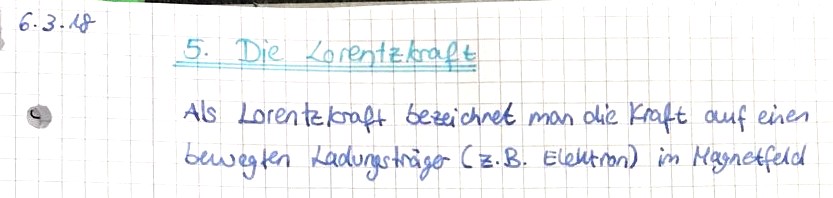 6.3.18
5. Die Lorentzkraft
Als Lorentzkraft bezeichnet man die Kraft auf einen
bewegten Ladungsträger (z.B. Elektron) im Magnetfeld